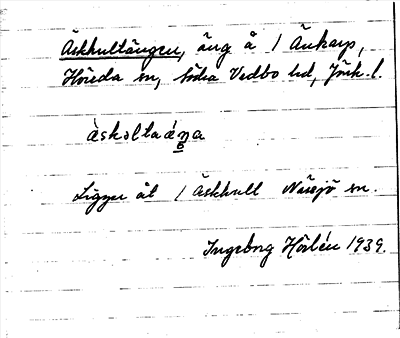 Äskhultängen, äng å 1 Änkarp,
Höreda sn, Södra Vedbo hd, Jönk. l.
àskəltaáŋa
Ligger åt 1 Äskhult Nässjö sn.
Ingeborg Hörlén 1939.